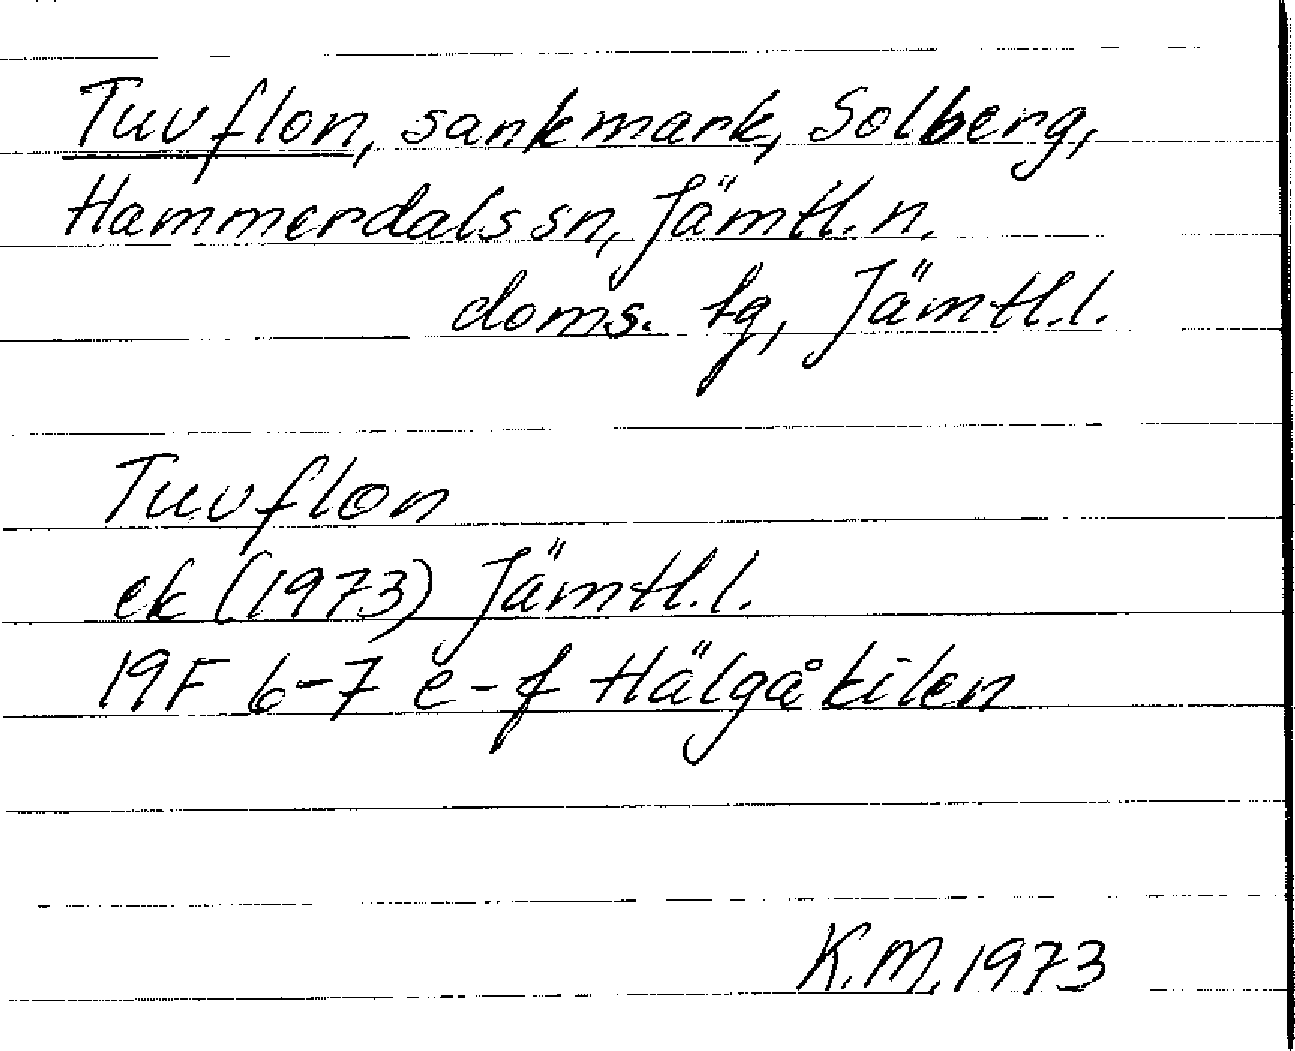 Tuvflon, sankmark, Solberg,
Hammerdals sn, Jämtl. n.
doms. tg, Jämtl.l.
Tuvflon
ek (1973) Jämtl.l.
19F 6-7 e-f Hälgåkilen
K.M. 1973